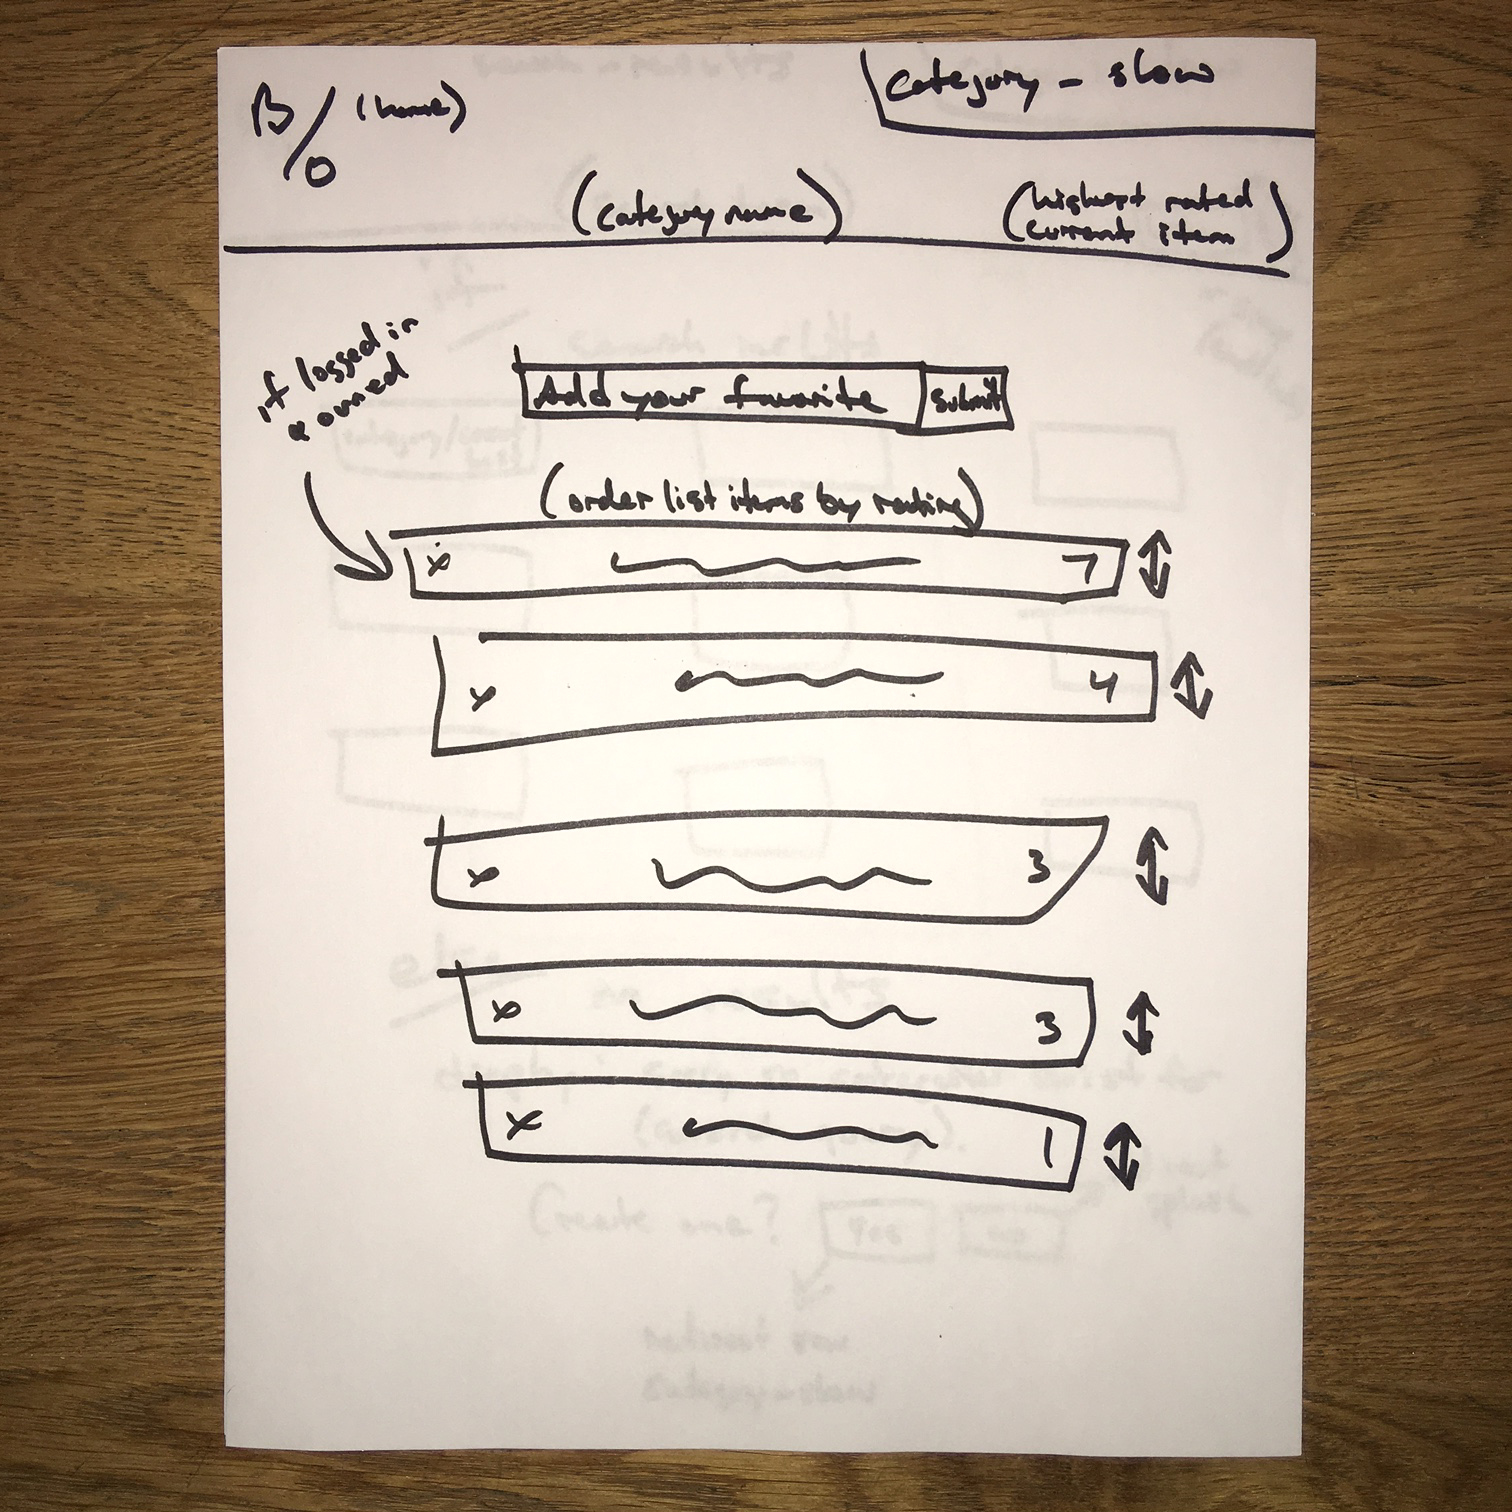 B/O (home)
category - show
(category name)
(highest rated
current item)
if logged in
& owned
Add your favorite
Submit
(order list items by rating)
x 7
x 4
x 3
x 3
x 1
Create one? Yes